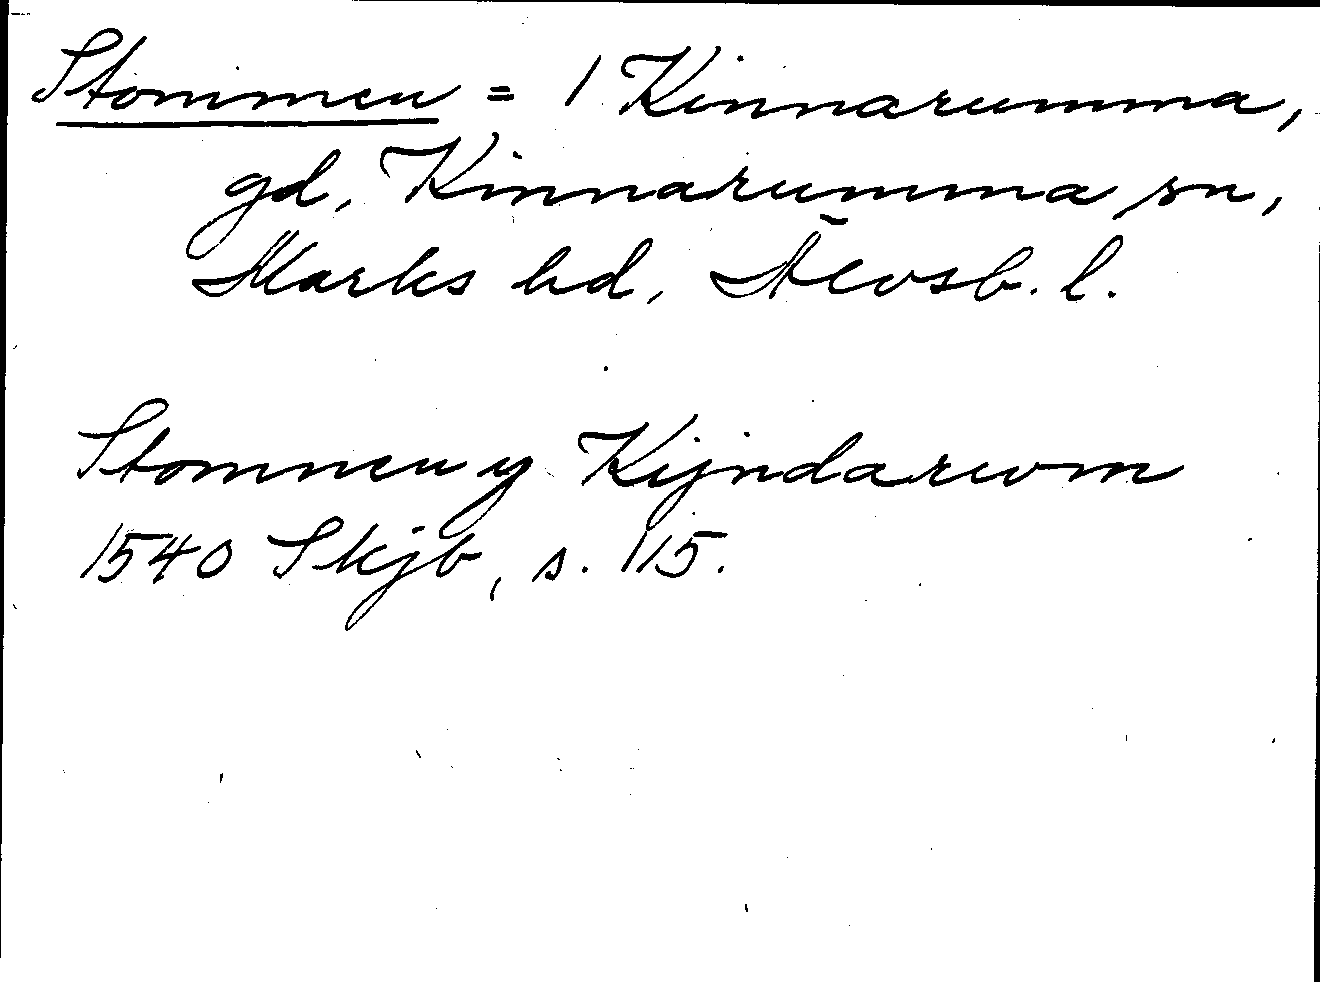 Stommen = 1 Kinnarumma,
gd, Kinnarumma sn,
Marks hd, Älvsb. l.
Stommen y Kijndarwm
1540 Skjb, s. 115.